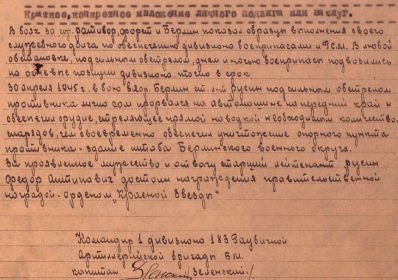 Краткое, конкретное изложение личного подвига или заслуг.
В боях за гор. Ратибор, Форст и Берлин показал образцы выполнения своего
служебного долга по обеспечению дивизиона боеприпасами и Гсм. В любой
обстановке, под сильным обстрелом, днем и ночью боеприпасы подвозились
на огневые позиции дивизиона точно в срок.
30 апреля 1945 г. в бою в гор. Берлин ст. л-т Русин под сильным обстрелом
противника лично сам прорвался на автомашине на передний край и
обеспечил орудие, стреляющее прямой наводкой необходимым количеством
снарядов, чем своевременно обеспечил уничтожение опорного пункта
противника - здание штаба Берлинского военного округа.
За проявленное мужество и отвагу старший лейтенант Русин
Федор достоин награждения правительственной
наградой - орденом "Красной Звезды"
Командир 1 дивизиона 183 Гаубичной
артиллерийской бригады Б.М.
капитан /Зеленский/